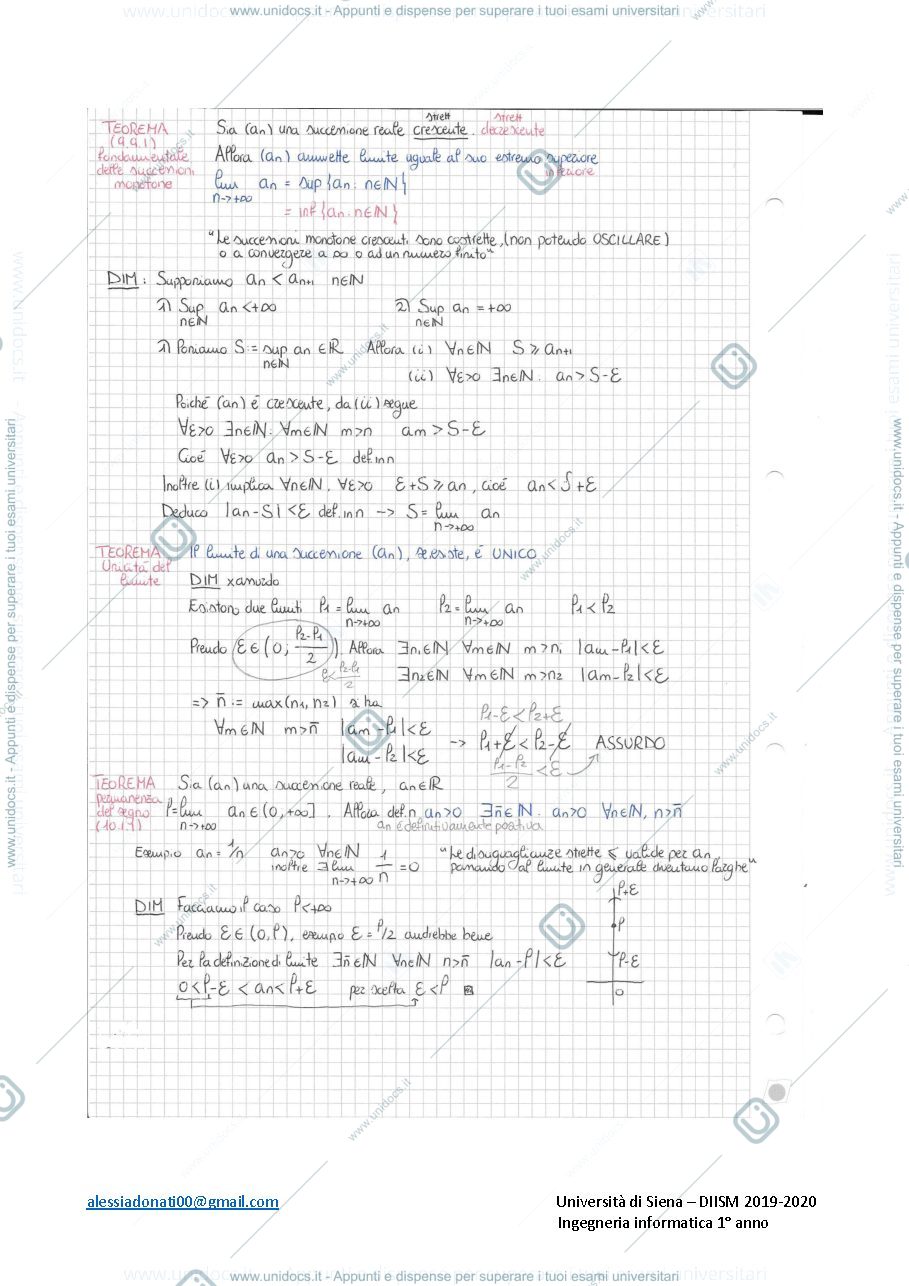 www.unidocs.it - Appunti e dispense per superare i tuoi esami universitari
strett strett
TEOREMA (9.9.1) fondamentale delle successioni monotone
Sia (an) una successione reale crescente. decrescente
Allora (an) ammette limite uguale al suo estremo superiore
inferiore
lim an = sup {an : n∈ℕ}
n→+∞
= inf {an : n∈ℕ}
"Le successioni monotone crescenti sono costrette, (non potendo OSCILLARE)
o a convergere a ∞ o ad un numero finito"
DIM: Supponiamo an < an+1 n∈ℕ
1) Sup an < +∞ 2) Sup an = +∞
n∈ℕ n∈ℕ
1) Poniamo S := sup an ∈ℝ Allora (i) ∀n∈ℕ S ⩾ an+1
n∈ℕ
(ii) ∀ε>0 ∃n∈ℕ. an > S-ε
Poiché (an) é crescente, da (ii) segue
∀ε>0 ∃n∈ℕ. ∀m∈ℕ m>n am > S-ε
Cioé ∀ε>0 an > S-ε def. in n
Inoltre (i) implica ∀n∈ℕ. ∀ε>0 ε+S ⩾ an, cioé an < S+ε
Deduco |an-S| < ε def. in n -> S = lim an
n→+∞
TEOREMA Unicitá del limite
Il limite di una successione (an), se esiste, é UNICO
DIM x assurdo
Esistono due limiti ℓ1 = lim an ℓ2 = lim an ℓ1 < ℓ2
n→+∞ n→+∞
Prendo ε∈(0; (ℓ2-ℓ1)/2). Allora ∃n1∈ℕ ∀m∈ℕ m>n1 |am-ℓ1|<ε
ε < (ℓ2-ℓ1)/2 ∃n2∈ℕ ∀m∈ℕ m>n2 |am-ℓ2|<ε
=> n̄ := max(n1, n2) si ha
ℓ1-ε < ℓ2+ε
∀m∈ℕ m>n̄ |am-ℓ1|<ε
-> ℓ1+ε < ℓ2-ε ASSURDO
|am-ℓ2|<ε
(ℓ1-ℓ2)/2 < ε
TEOREMA permanenza del segno (10.1.1)
Sia (an) una successione reale, an∈ℝ
ℓ = lim an ∈ (0, +∞]. Allora def. n an>0 ∃n̄∈ℕ. an>0 ∀n∈ℕ, n>n̄
n→+∞
an é definitivamente positiva
Esempio an = 1/n an>0 ∀n∈ℕ "Le disuguaglianze strette ≤ valide per an
inoltre ∃ lim 1/n = 0 passando al limite in generale diventano larghe"
n→+∞
DIM Facciamo il caso ℓ<+∞
Prendo ε∈(0,ℓ), esempio ε = ℓ/2 andrebbe bene
Per la definizione di limite ∃n̄∈ℕ ∀n∈ℕ n>n̄ |an-ℓ|<ε
0 < ℓ-ε < an < ℓ+ε per scelta ε<ℓ
ℓ+ε
ℓ
ℓ-ε
0
alessiadonati00@gmail.com
Università di Siena – DIISM 2019-2020
Ingegneria informatica 1° anno
www.unidocs.it - Appunti e dispense per superare i tuoi esami universitari